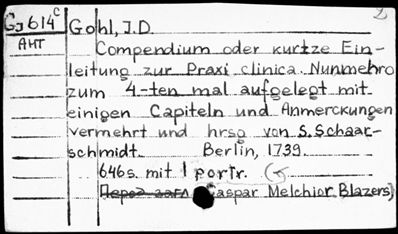 Gj614c Gohl, J.D.
АНТ Compendium oder kurtze Ein-
leitung zur Praxi clinica. Nunmehro
zum 4-ten mal aufgelegt mit
einigen Capiteln und Anmerckungen
vermehrt und hrsg von S. Schaar-
schmidt. Berlin, 1739.
646 s. mit 1 portr. (
Перед загл Caspar Melchior Blazers)
2